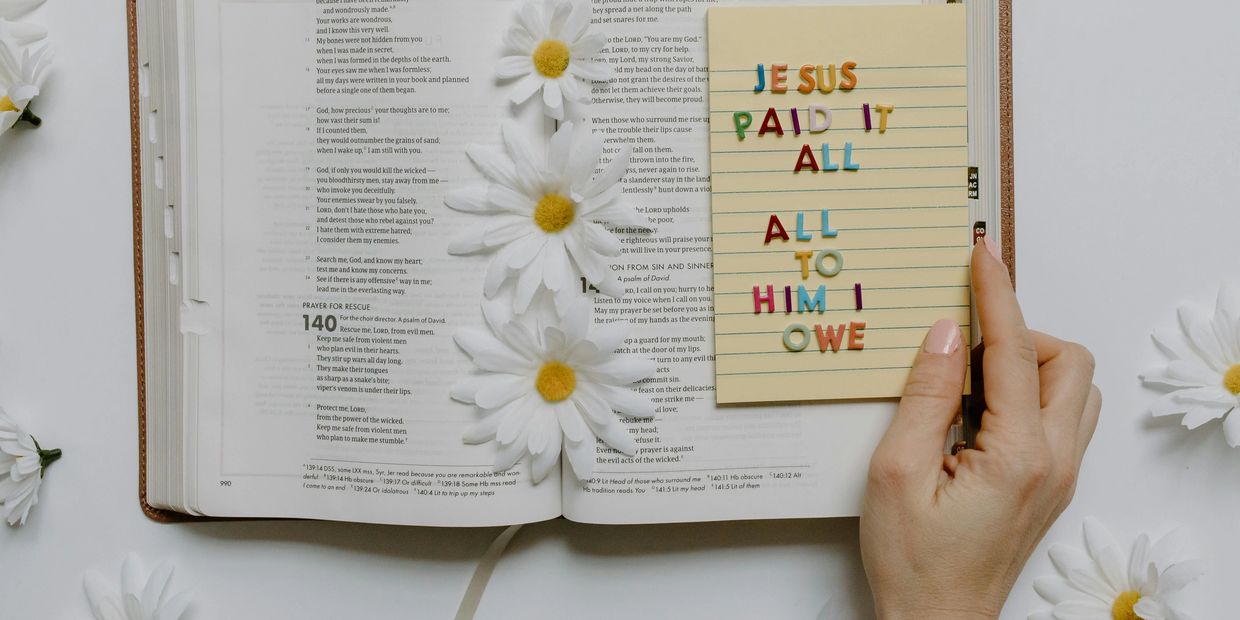 and wondrously made.
Your works are wondrous,
and I know this very well.
My bones were not hidden from you
when I was made in secret,
when I was formed in the depths of the earth.
Your eyes saw me when I was formless;
all my days were written in your book and planned
before a single one of them began.
God, how precious your thoughts are to me;
how vast their sum is!
If I counted them,
they would outnumber the grains of sand;
when I wake up, I am still with you.
God, if only you would kill the wicked —
you bloodthirsty men, stay away from me —
who invoke you deceitfully.
Your enemies swear by you falsely.
LORD, don't I hate those who hate you,
and detest those who rebel against you?
I hate them with extreme hatred;
I consider them my enemies.
Search me, God, and know my heart;
test me and know my concerns.
See if there is any offensive way in me;
lead me in the everlasting way.
PRAYER FOR RESCUE
140 For the choir director. A psalm of David.
Rescue me, LORD, from evil men.
Keep me safe from violent men
who plan evil in their hearts.
They stir up wars all day long.
They make their tongues
as sharp as a snake's bite;
viper's venom is under their lips.
Protect me, LORD,
from the power of the wicked.
Keep me safe from violent men
who plan to make me stumble.
139:14 DSS, some LXX mss, Syr, Jer read because you are remarkable and won-
derful 139:14 Hb obscure 139:17 Or difficult 139:18 Some Hb mss read
I come to an end 139:24 Or idolatrous 140:4 Lit to trip up my steps
990
they spread a net along the path
and set snares for me.
to the LORD, "You are my God."
LORD, to my cry for help.
LORD, my Lord, my strong Savior,
my head on the day of
do not grant the desires of the
do not let them achieve their goals.
Otherwise, they will become proud.
When those who surround me rise up
the trouble their lips cause
overwhelm them.
hot fall on them.
thrown into the fire,
never again to rise.
a slanderer stay in the land
hunt down a
the LORD upholds
the poor,
justice for the needy.
the righteous will praise your
will live in your presence.
FROM SIN AND SINNERS
14 A psalm of David.
I call on you; hurry to
Listen to my voice when I call on you.
May my prayer be set before you as
the raising of my hands as the evening
up a guard for my mouth;
watch at the door of my lips.
turn to any evil
acts
commit sin.
feast on their delicacies.
one strike me —
love;
rebuke me —
my head;
refuse it.
my prayer is against
the evil acts of the wicked.
140:9 Lit Head of those who surround me 140:11 Hb obscure 140:12 Alt
Hb tradition reads You 141:5 Lit my head 141:5 Lit of them
JESUS
PAID IT
ALL
ALL
TO
HIM I
OWE
JN
AC
RM
CO